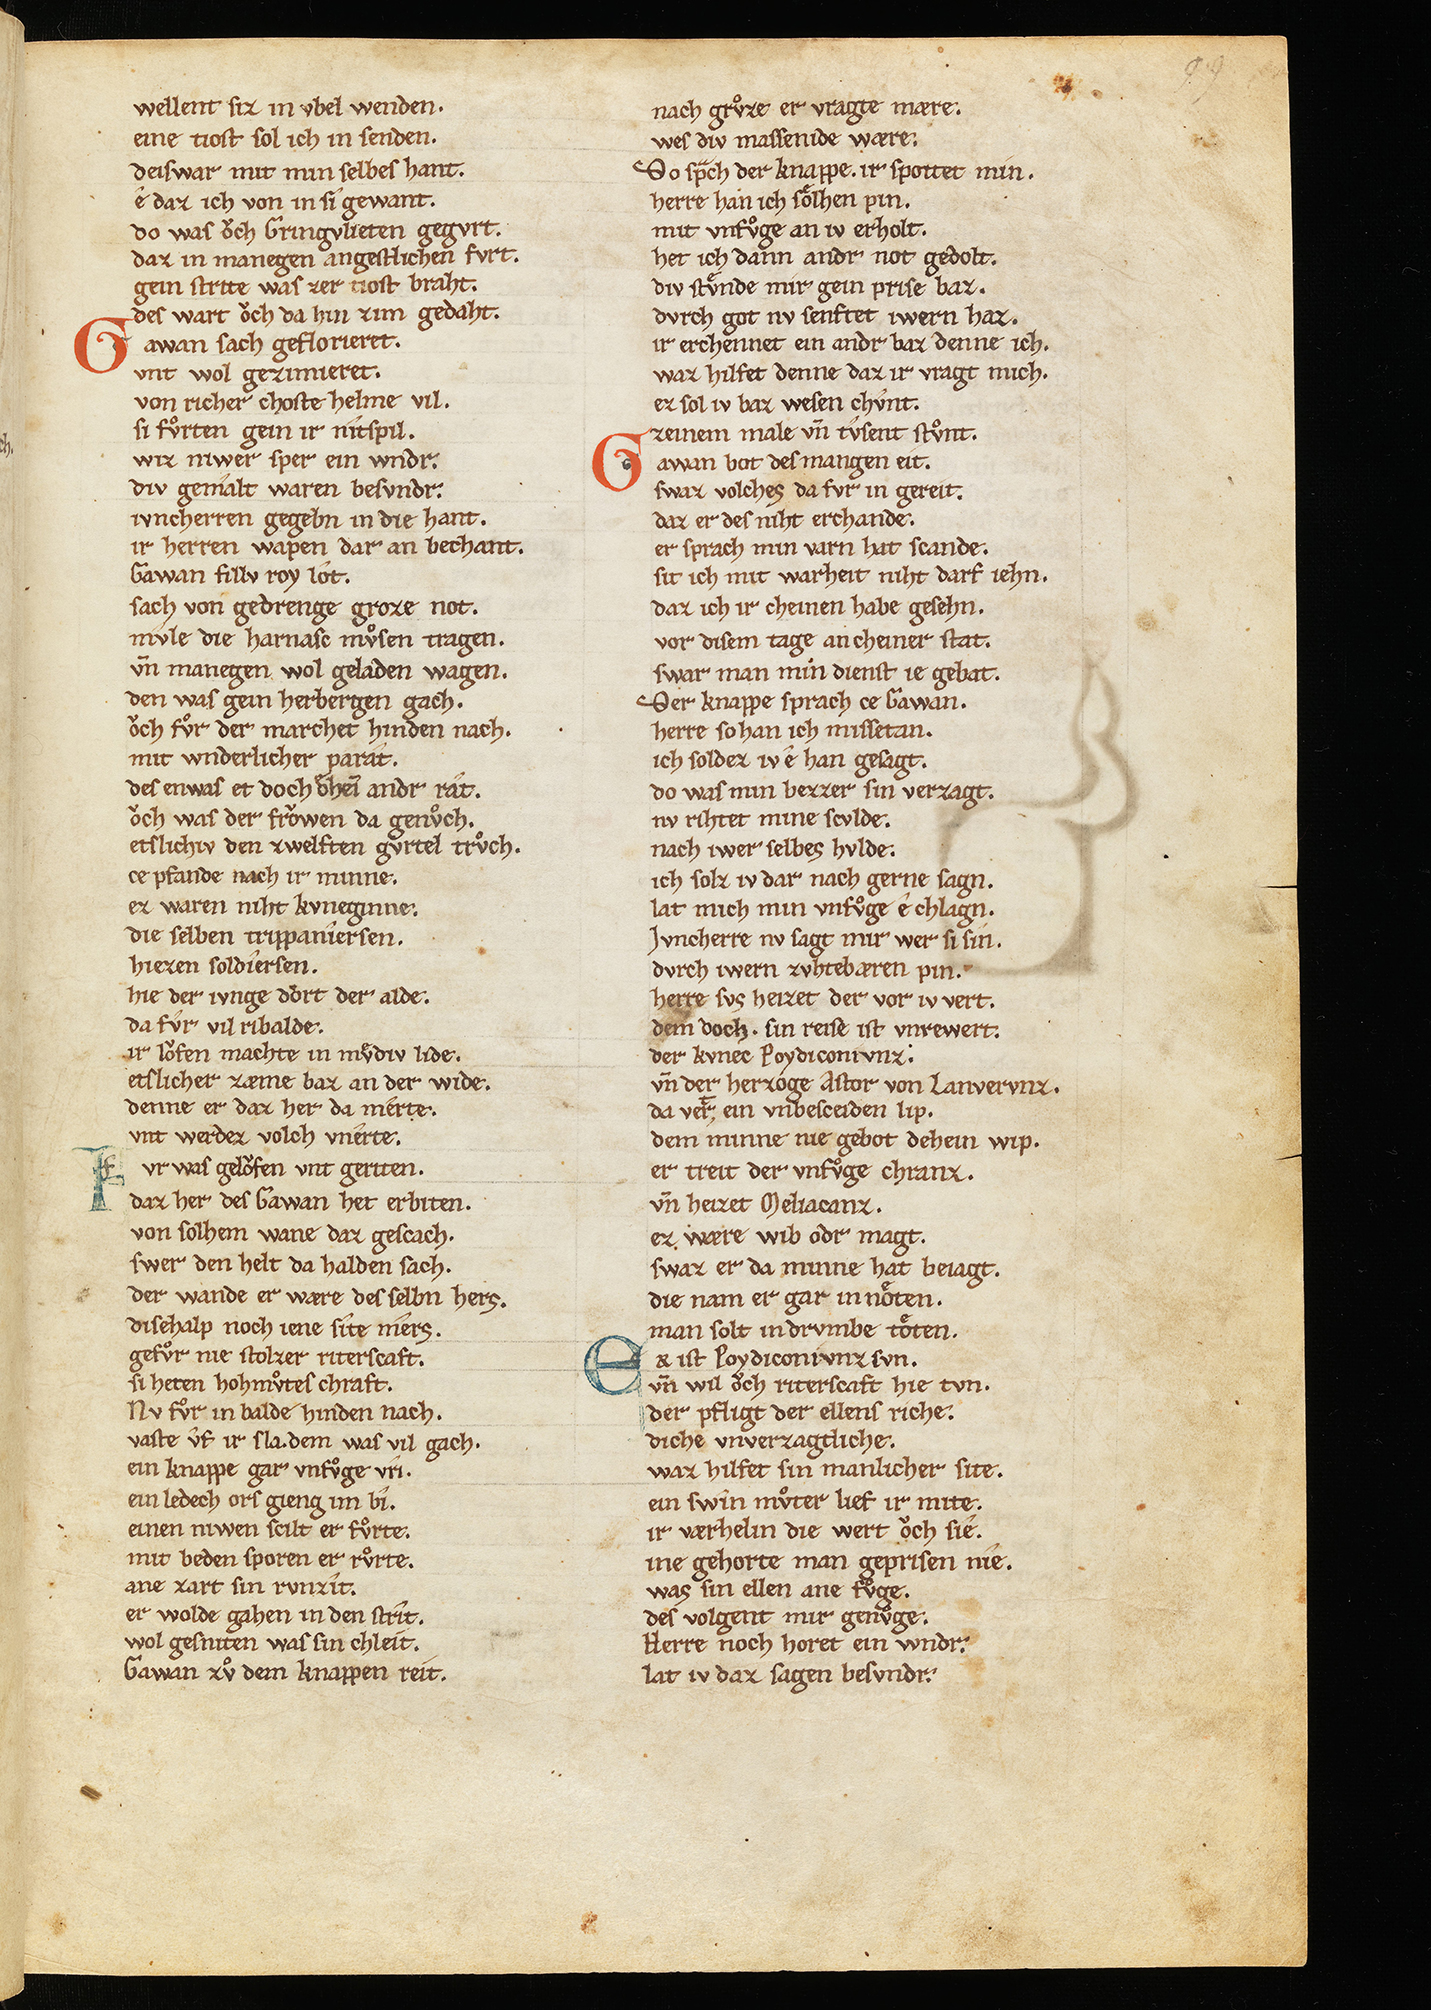 wellent siz in vbel wenden.
eine tiost sol ich in senden.
deiswar mit min selbes hant.
ê daz ich von in si gewant.
do was oͮch Gringvlieten gegvrt.
daz in manegen angestlichen fvrt.
gein strite was zer tiost braht.
des wart oͮch da hin zim gedaht.
Gawan sach geflorieret.
vnt wol gezimieret.
von richer choste helme vil.
si fvͦrten gein ir nîtspil.
wiz niwer sper ein wndr.
div gemâlt waren besvndr.
ivncherren gegebn in die hant.
ir herren wapen dar an bechant.
Gawan fillv roy lôt.
sach von gedrenge groze not.
mvle die harnasc mvͦsen tragen.
vn̄ manegen wol geladen wagen.
den was gein herbergen gach.
oͮch fvͦr der marchet hinden nach.
mit wnderlicher parât.
des enwas et doch dhei andr rât.
oͮch was der froͮwen da genvͦch.
etslichiv den zwelften gvrtel trvͦch.
ce pfande nach ir minne.
ez waren niht kvneginne.
die selben trippaniersen.
hiezen soldiersen.
hie der ivnge dort der alde.
da fvr vil ribalde.
ir loͮfen machte in mvͤdiv lide.
etslicher zæme baz an der wide.
denne er daz her da mêrte.
vnt werdez volch vnêrte.
Fvr was geloͮfen vnt geriten.
daz her des Gawan het erbiten.
von solhem wane daz gescach.
swer den helt da halden sach.
der wande er wære des selbn hers.
disehalp noch iene site mers.
gefvͦr nie stolzer riterscaft.
si heten hohmvͦtes chraft.
Nv fvͦr in balde hinden nach.
vaste vf ir sla. dem was vil gach.
ein knappe gar vnfvͦge vri.
ein ledech ors gieng im bî.
einen niwen scilt er fvͦrte.
mit beden sporen er rvͦrte.
ane zart sin rvnzît.
er wolde gahen in den strît.
wol gesniten was sin chleit.
Gawan zvͦ dem knappen reit.
nach grvͦze er vragte mære.
wes div massenide wære.
Do sp̄ch der knappe. ir spottet min.
herre han ich soͤlhen pin.
mit vnfvͦge an iv erholt.
het ich dann andr not gedolt.
div stvͤnde mir gein prise baz.
dvrch got nv senftet iwern haz.
ir erchennet ein andr baz denne ich.
waz hilfet denne daz ir vragt mich.
ez sol iv baz wesen chvnt.
zeinem male vn̄ tvsent stvͦnt.
Gawan bot des mangen eit.
swaz volches da fvr in gereit.
daz er des niht erchande.
er sprach min varn hat scande.
sit ich mit warheit niht darf iehn.
daz ich ir cheinen habe gesehn.
vor disem tage an cheiner stat.
swar man min dienst ie gebat.
Der knappe sprach ce Gawan.
herre so han ich missetan.
ich soldez iv ê han gesagt.
do was min bezzer sin verzagt.
nv rihtet mine scvlde.
nach iwer selbes hvlde.
ich solz iv dar nach gerne sagn.
lat mich min vnfvͦge ê chlagn.
Jvncherre nv sagt mir wer si sin.
dvrch iwern zvhtebæren pin.
herre svs heizet der vor iv vert.
dem doch. sin reise ist vnrewert.
der kvnec Poydiconivnz.
vn̄ der herzoge Astor von Lanvervnz.
da vert ein vnbesceiden lip.
dem minne nie gebot dehein wip.
er treit der vnfvͦge chranz.
vn̄ heizet Meliacanz.
ez wære wib odr magt.
swaz er da minne hat beiagt.
die nam er gar in noͤten.
man solt in drvmbe toͤten.
Ez ist Poydiconivnz svn.
vn̄ wil oͮch riterscaft hie tvn.
der pfligt der ellens riche.
diche vnverzagtliche.
waz hilfet sin manlicher site.
ein swin mvͦter lief ir mite.
ir værhelin die wert oͮch sie.
ine gehorte man geprisen nie.
was sin ellen ane fvͦge.
des volgent mir genvͦge.
Herre noch horet ein wndr.
lat iv daz sagen besvndr.